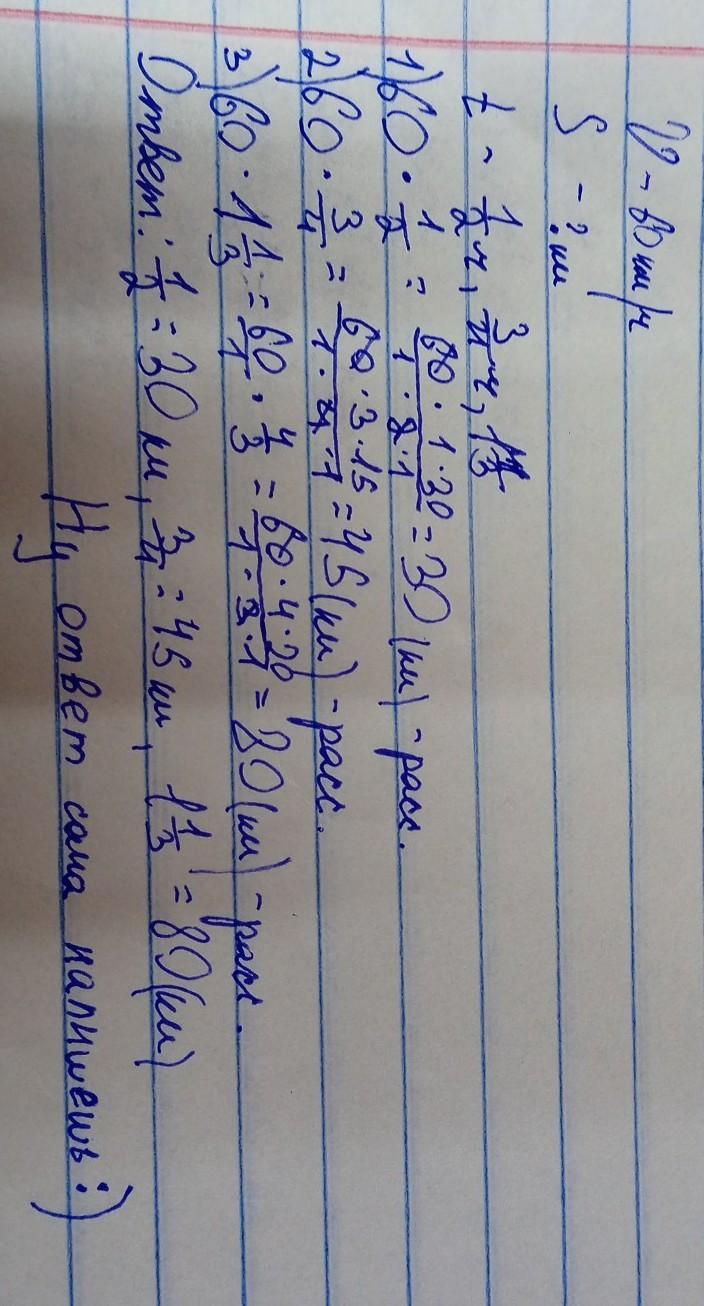 V - 60 км/ч
S - ? км
t - 1/2 ч, 3/4 ч, 1 1/3
1) 60 · 1/2 = 60 · 1 · 30 / 1 · 2 · 1 = 30 (км) - расс.
2) 60 · 3/4 = 60 · 3 · 15 / 1 · 4 · 1 = 45 (км) - расс.
3) 60 · 1 1/3 = 60/1 · 4/3 = 60 · 4 · 20 / 1 · 3 · 1 = 80 (км) - расс.
Ответ: 1/2 = 30 км, 3/4 = 45 км, 1 1/3 = 80 (км)
Ну ответ сама напишешь :)